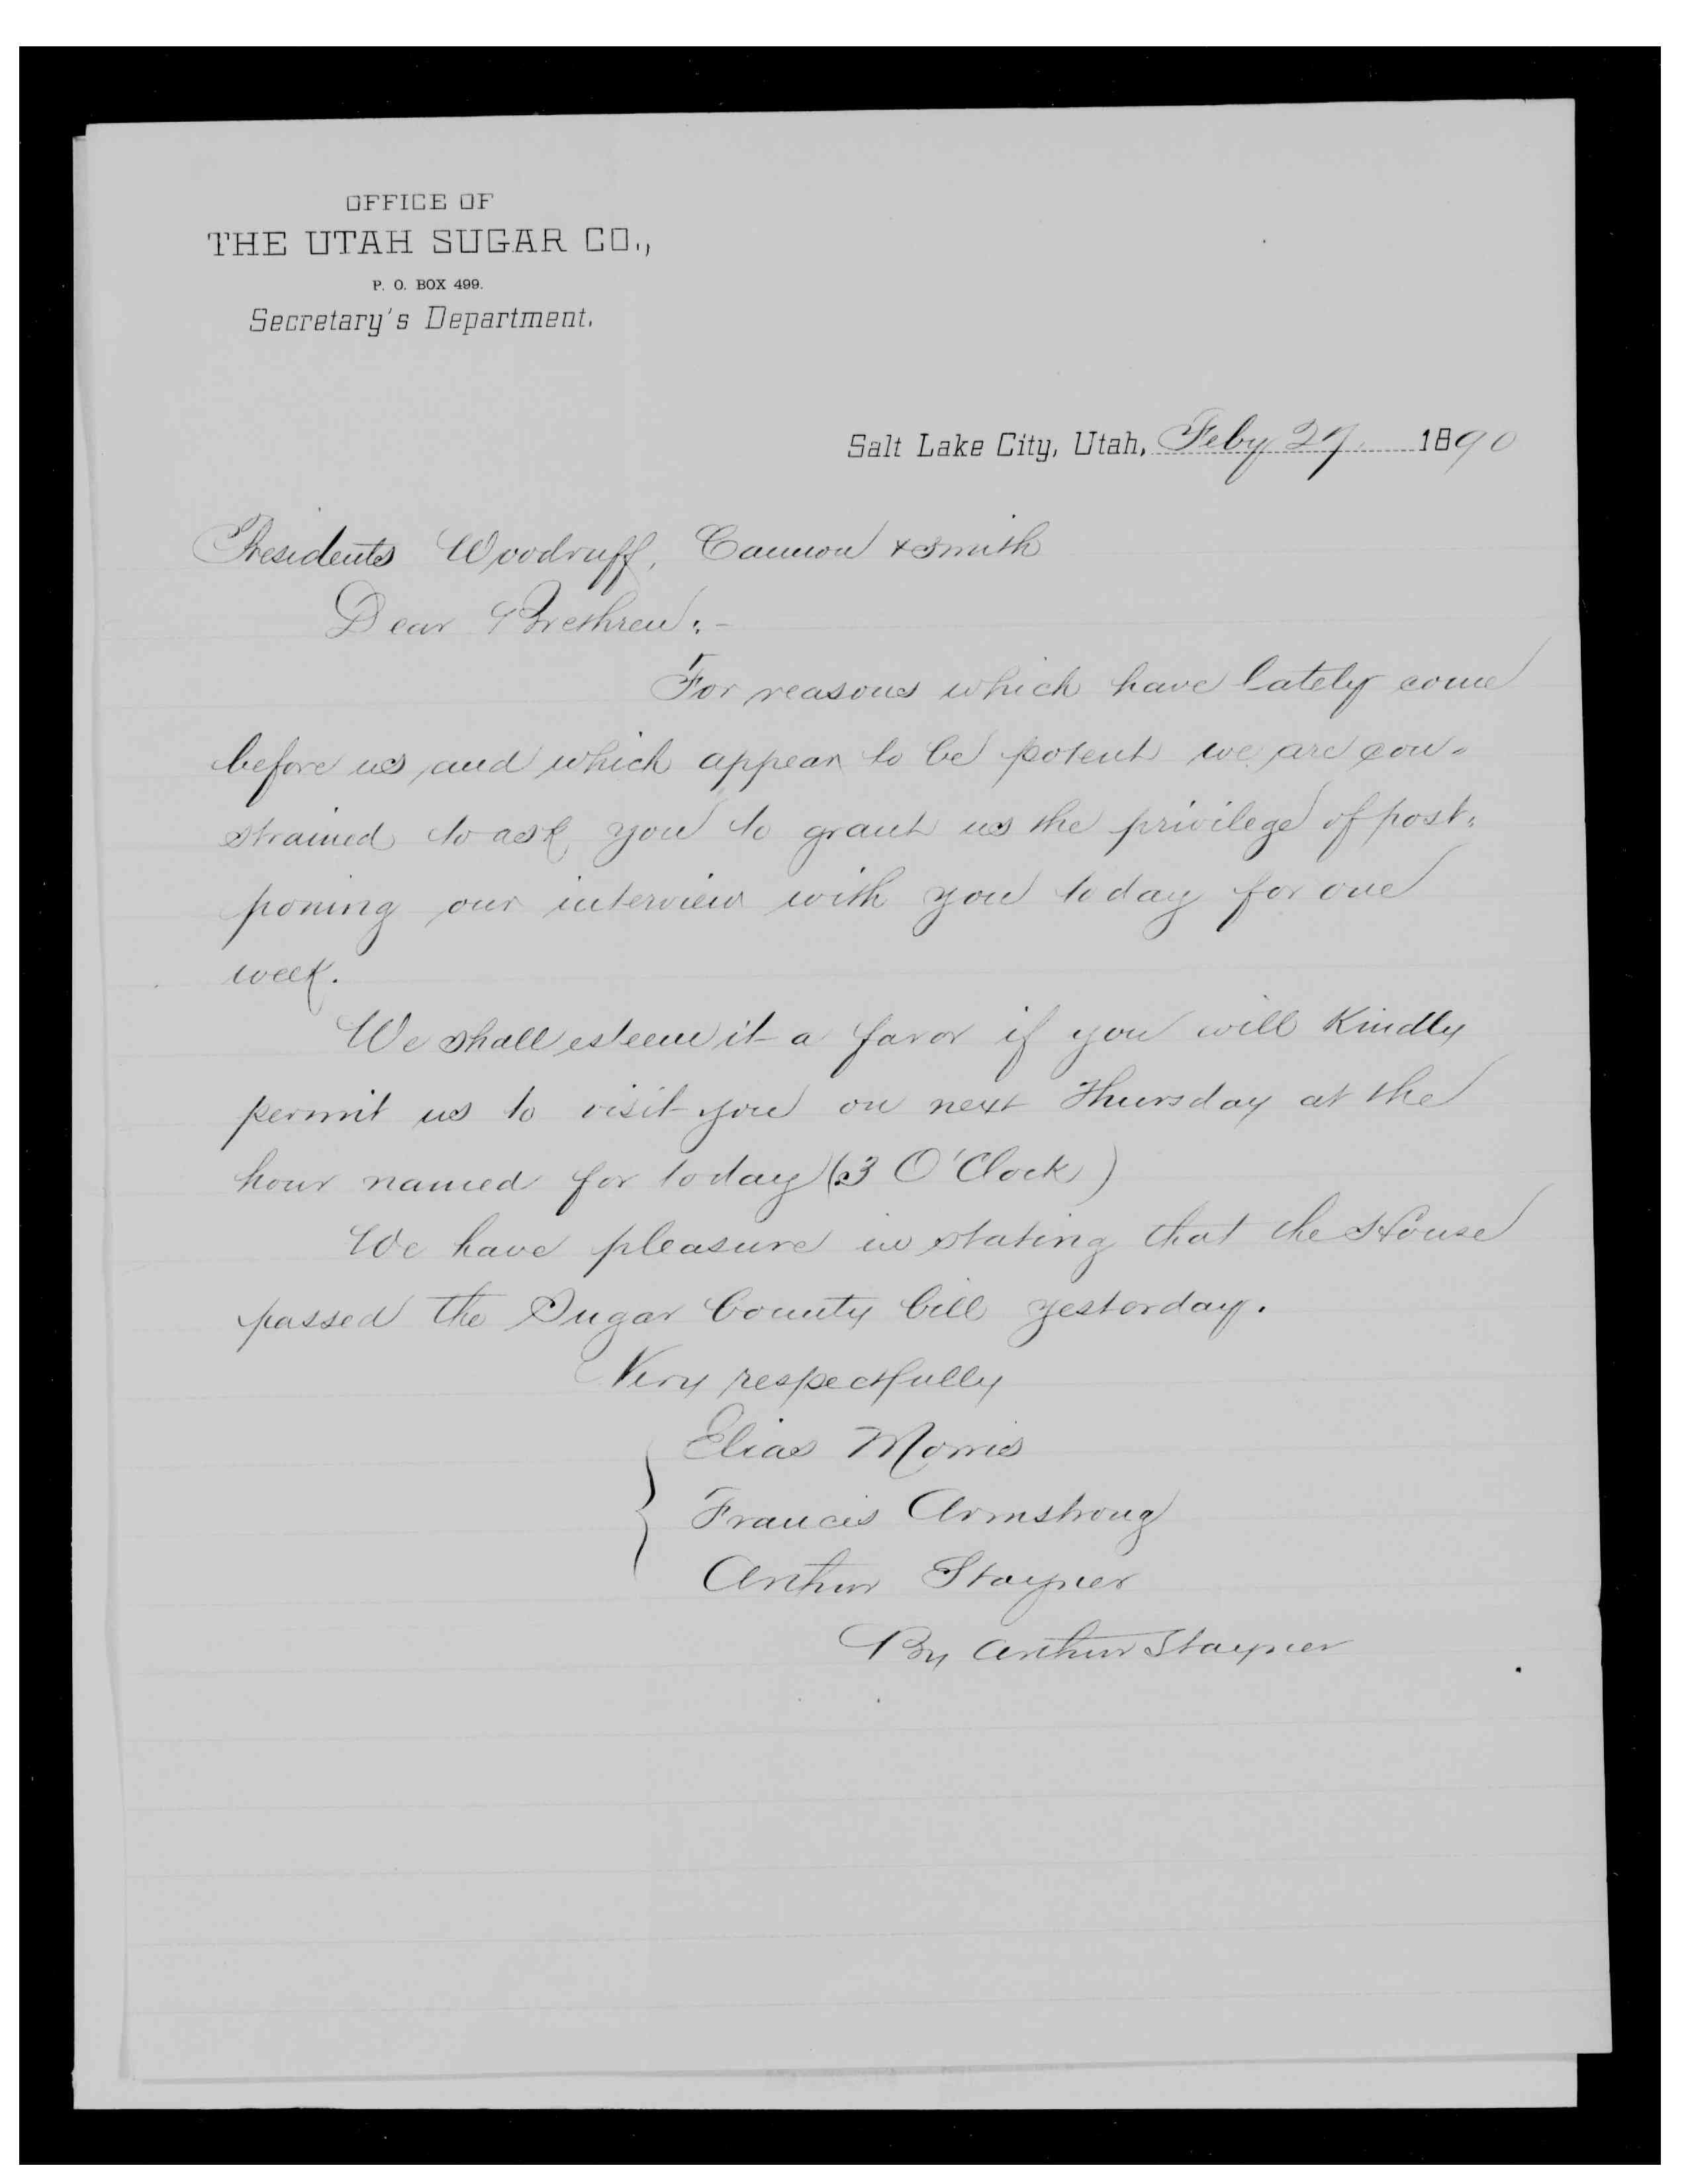 OFFICE OF
THE UTAH SUGAR CO.,
P. O. BOX 499.
Secretary's Department.
Salt Lake City, Utah, Feby 27. 1890
Presidents Woodruff, Cannon & Smith
Dear Brethren:-
For reasons which have lately come
before us and which appear to be potent we are con-
strained to ask you to grant us the privilege of post-
poning our interview with you today for one
week.
We shall esteem it a favor if you will Kindly
permit us to visit you on next Thursday at the
hour named for today (3 O'Clock)
We have pleasure in stating that the House
passed the Sugar bounty bill yesterday.
Very respectfully
Elias Morris
Francis Armstrong
Arthur Stayner
By Arthur Stayner